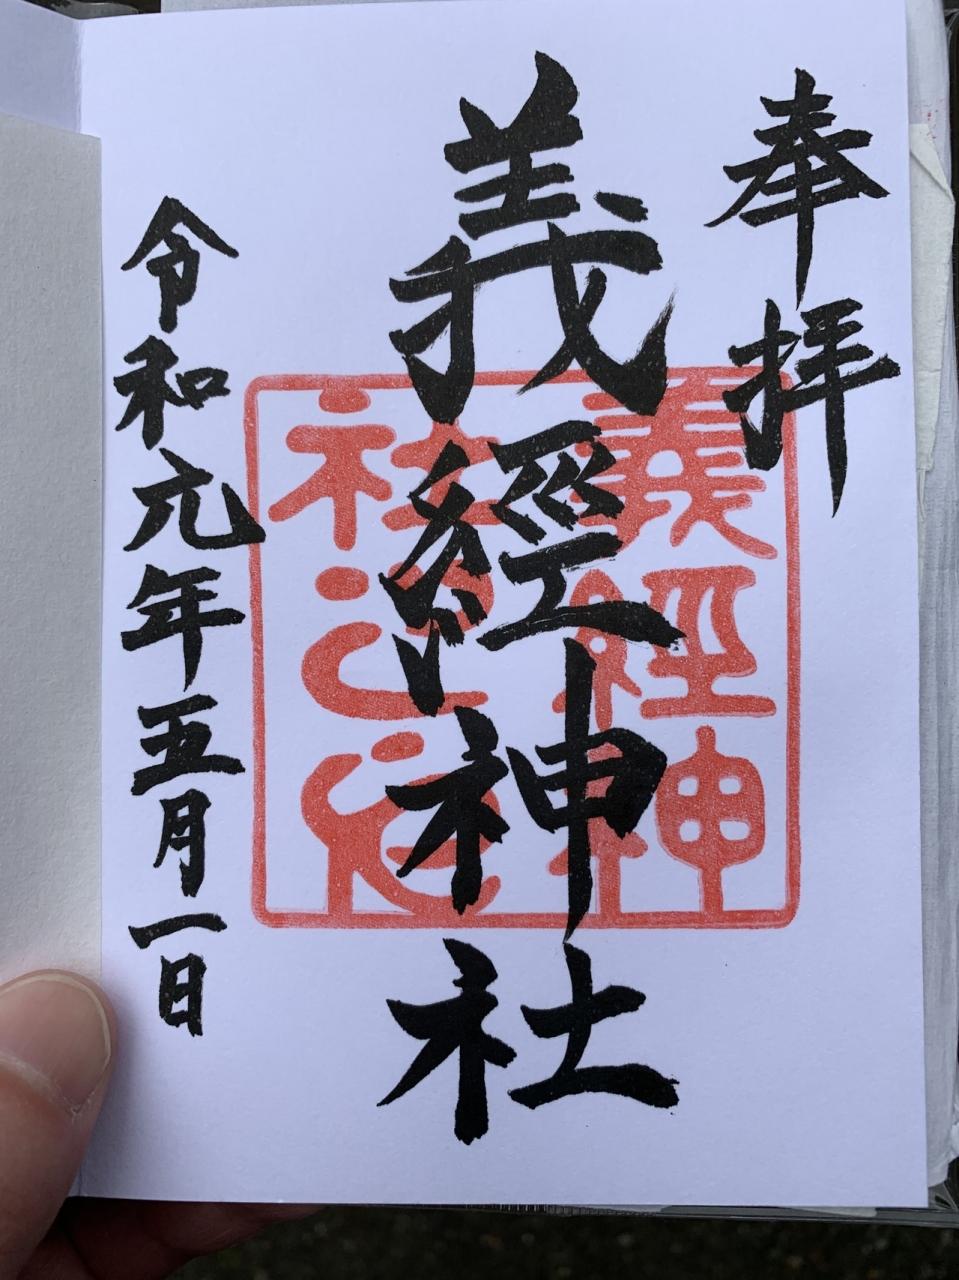 奉拝
義經神社
義經神社之印
令和元年五月一日